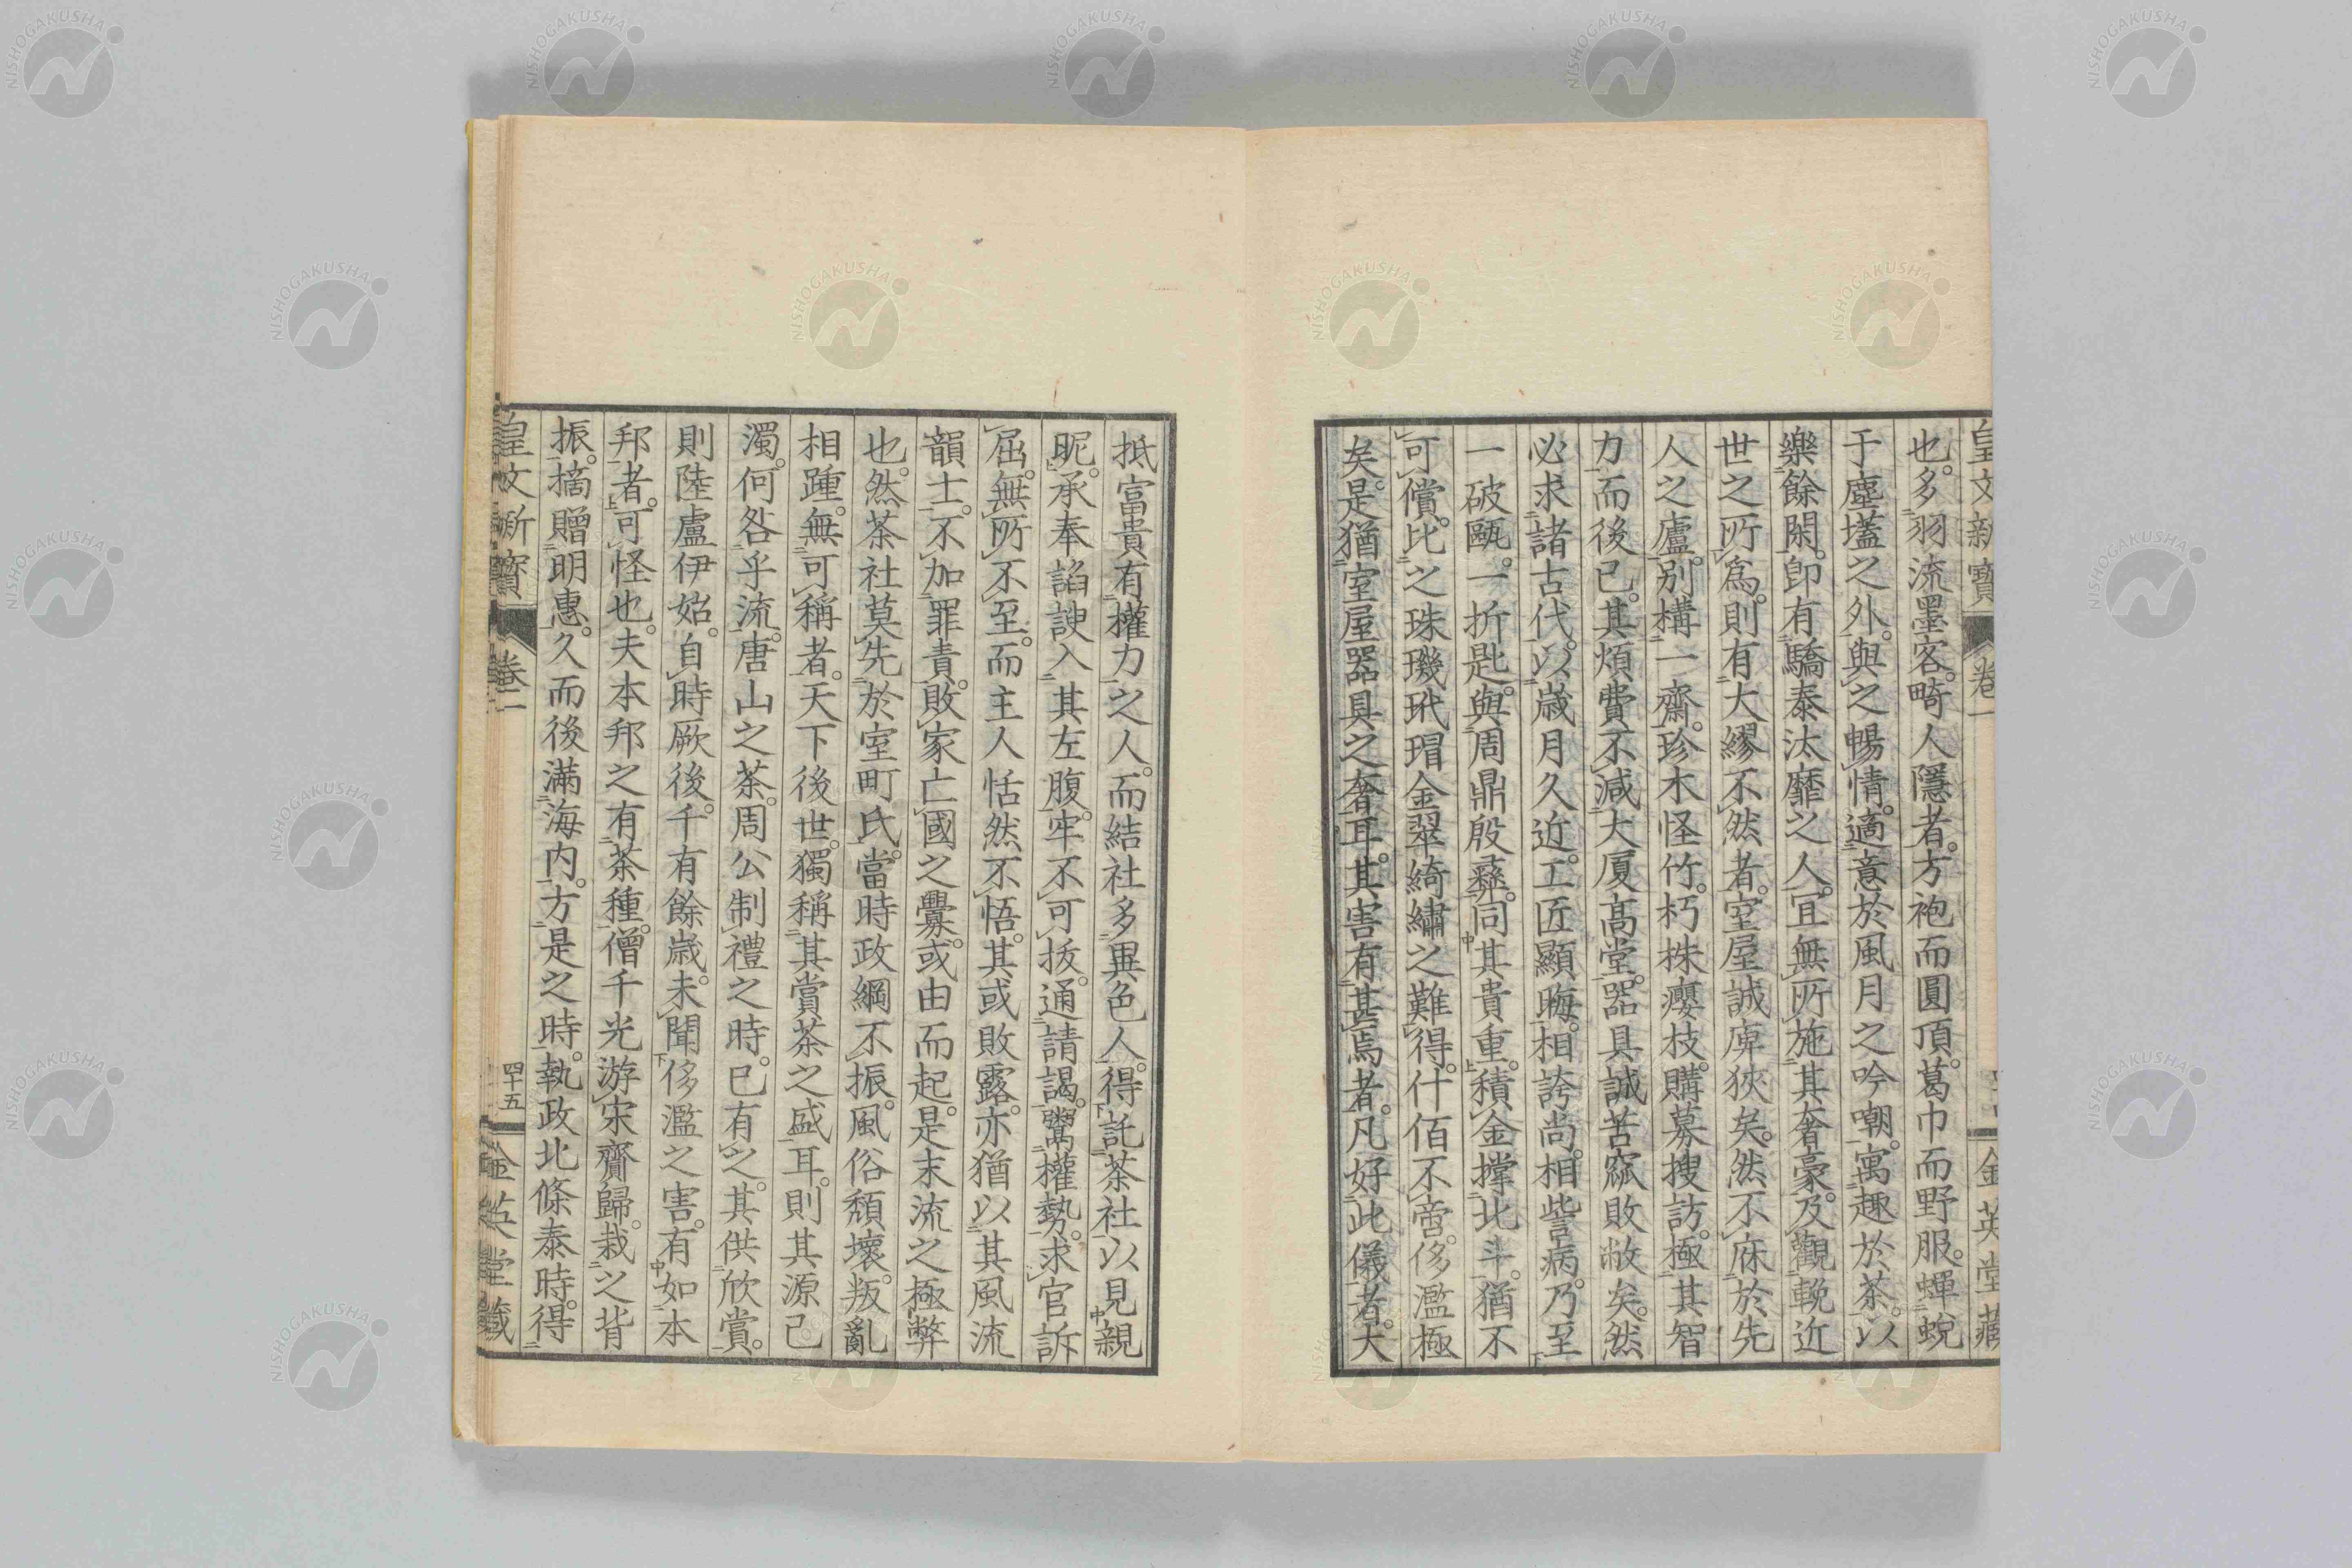 皇文新寶　卷二　金英堂藏
也。多羽流墨客。畸人隱者。方袍而圓頂。葛巾而野服。蟬蛻
于塵壒之外。與之暢情。適意於風月之吟嘲。寓趣於茶。以
樂餘閑。卽有驕泰汰靡之人。宜無所施其奢豪。乃觀輓近
世之所爲。則有大繆不然者。室屋誠庳狹矣。然不庥於先
人之廬。別構一齋。珍木怪竹。朽株癭枝。購募搜訪。極其智
力而後已。其煩費不減大厦高堂。器具誠苦窳敗敝矣。然
必求諸古代。以歲月久近。工匠顯晦。相誇尚。相訾病。乃至
一破甌。一折匙。與周鼎殷彝。同其貴重。積金撑北斗。猶不
可償。比之珠璣玳瑁金翠綺繡之難得。什佰不啻。侈濫極
矣。是猶室屋器具之奢耳。其害有甚焉者。凡好此儀者。大
抵富貴有權力之人。而結社多異色人。得託茶社以見親
昵。承奉諂諛入其左腹。牢不可拔。通請謁。鬻權勢。求官訴
屈。無所不至。而主人恬然不悟。其或敗露。亦猶以其風流
韻士。不加罪責。敗家亡國之釁。或由而起。是末流之極弊
也。然茶社莫先於室町氏。當時政綱不振。風俗頽壞。叛亂
相踵。無可稱者。天下後世。獨稱其賞茶之盛耳。則其源已
濁。何咎乎流。唐山之茶。周公制禮之時。已有之。其供欣賞。
則陸盧伊始。自時厥後。千有餘歲。未聞侈濫之害。有如本
邦者。可怪也。夫本邦之有茶種。僧千光游宋齎歸。栽之背
振。摘贈明惠。久而後滿海内。方是之時。執政北條泰時。得
皇文新寶　卷二　四十五　金英堂藏
NISHOGAKUSHA